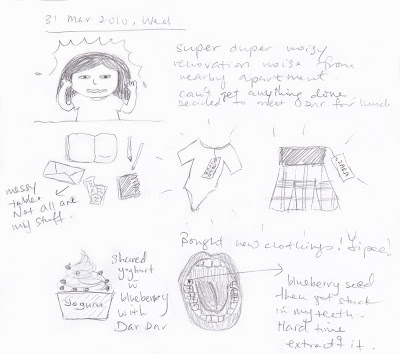 31 Mar 2010, Wed
super duper noisy
renovation noise from
nearby apartment
can't get anything done.
Decided to meet Dar for lunch
messy
table.
Not all are
my stuff.
Bought new clothings! Yipee!
shared
yoghurt
w
blueberry
with
Dar Dar
Yoguru
blueberry seed
then got stuck
in my teeth.
Hard time
extractg it.